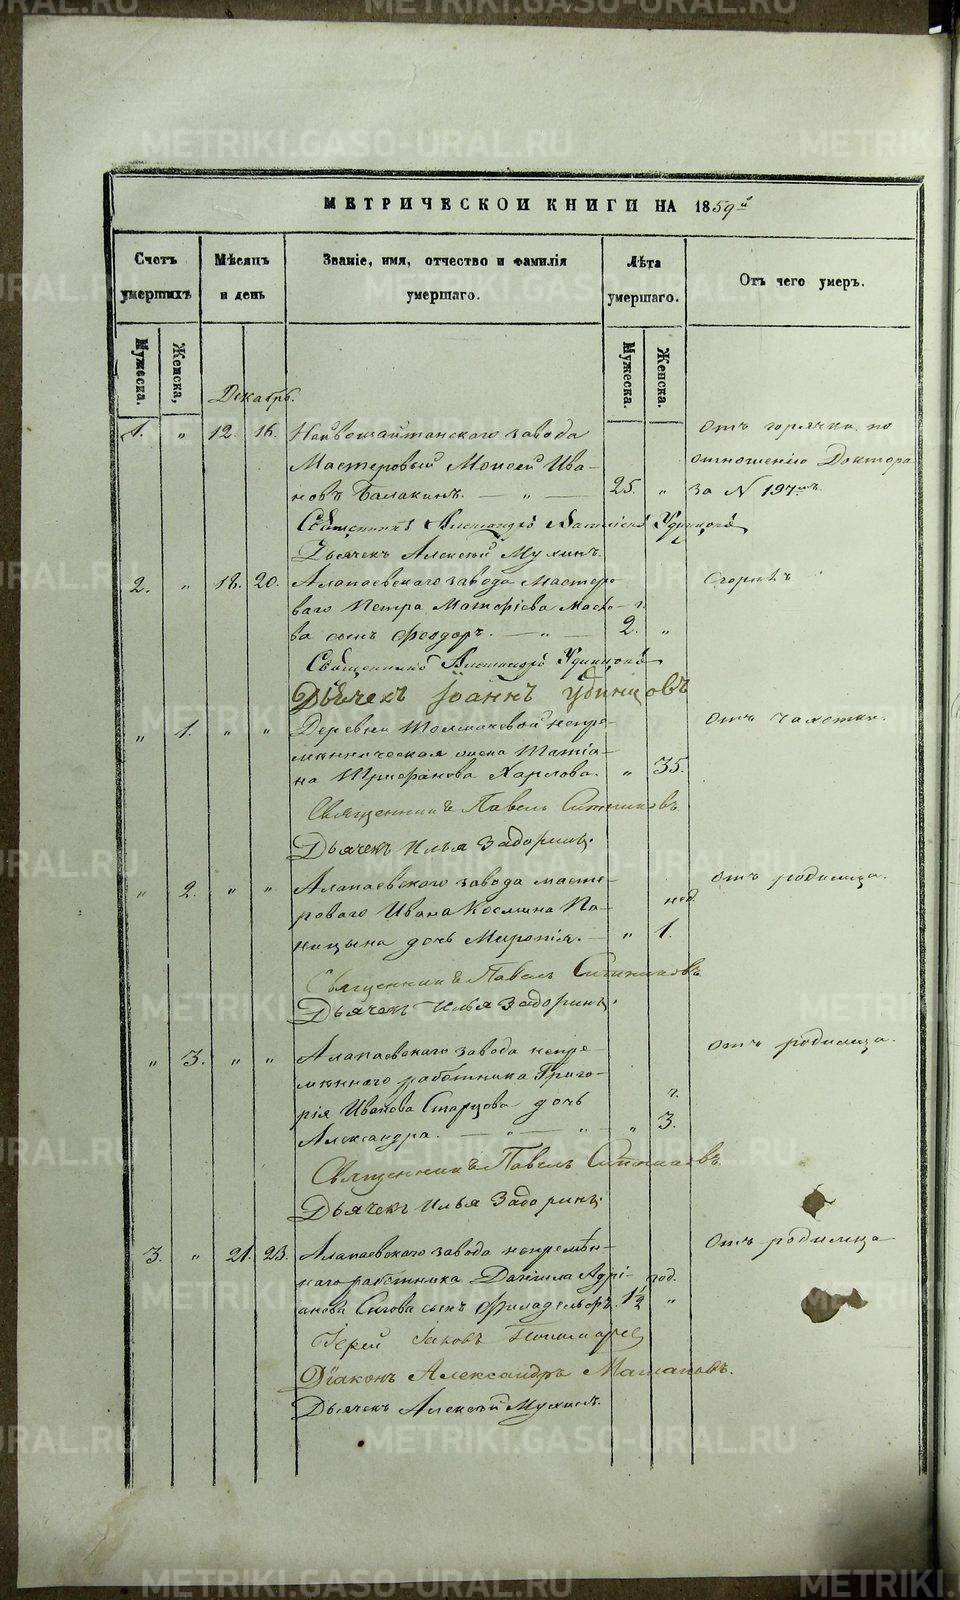 METRIKI.GASO-URAL.RU
МЕТРИЧЕСКОЙ КНИГИ НА 1859й
Счетъ умершихъ
Мѣсяцъ и день
Званіе, имя, отчество и фамилія умершаго.
Лѣта умершаго.
Отъ чего умеръ.
Мужеска.
Женска,
Мужеска.
Женска.
Декабрь.
1. „ 12. 16. Нейвошайтанскаго завода
Отъ горячки по
Мастеровый Моисей Ива-
отношенію Доктора
новъ Балакинъ. — „ — 25. „ за N 197мъ.
Священникъ Александръ Удинцовъ
Дьячекъ Алексей Мухинъ.
2. „ 18. 20. Алапаевскаго завода Мастеро-
Сгорѣлъ
ваго Петра
ва сынъ Феодоръ. — „ — 2. „
Священникъ Александръ Удинцовъ
Дьячекъ Іоаннъ Удинцовъ
„ 1. „ „ Деревни Толмачевой непре-
Отъ чахотки.
жена Татіа-
на Трифанова Харлова. „ 35.
Священникъ Павелъ Ситниковъ.
Дьячекъ Илья Задоринъ.
„ 2. „ „ Алапаевскаго завода масте-
Отъ родимца.
роваго Ивана Космина Па-
нед.
ницына дочь Миропія. — „ 1.
Священникъ Павелъ Ситниковъ
Дьячекъ Илья Задоринъ.
„ 3. „ „ Алапаевскаго завода непре-
Отъ родимца.
мѣннаго работника Григо-
рія Иванова Старцова дочь
г.
Александра. — „ — „ — „ 3.
Священникъ Павелъ Ситниковъ.
Дьячекъ Илья Задоринъ.
3. „ 21. 23. Алапаевскаго завода непремѣн-
Отъ родимца
наго работника Даніила Адрі-
год.
анова Сигова сынъ Филадельфъ. 1½ „
Іерей Іаковъ Пономаревъ
Діаконъ Александръ
Дьячекъ Алексей Мухинъ.